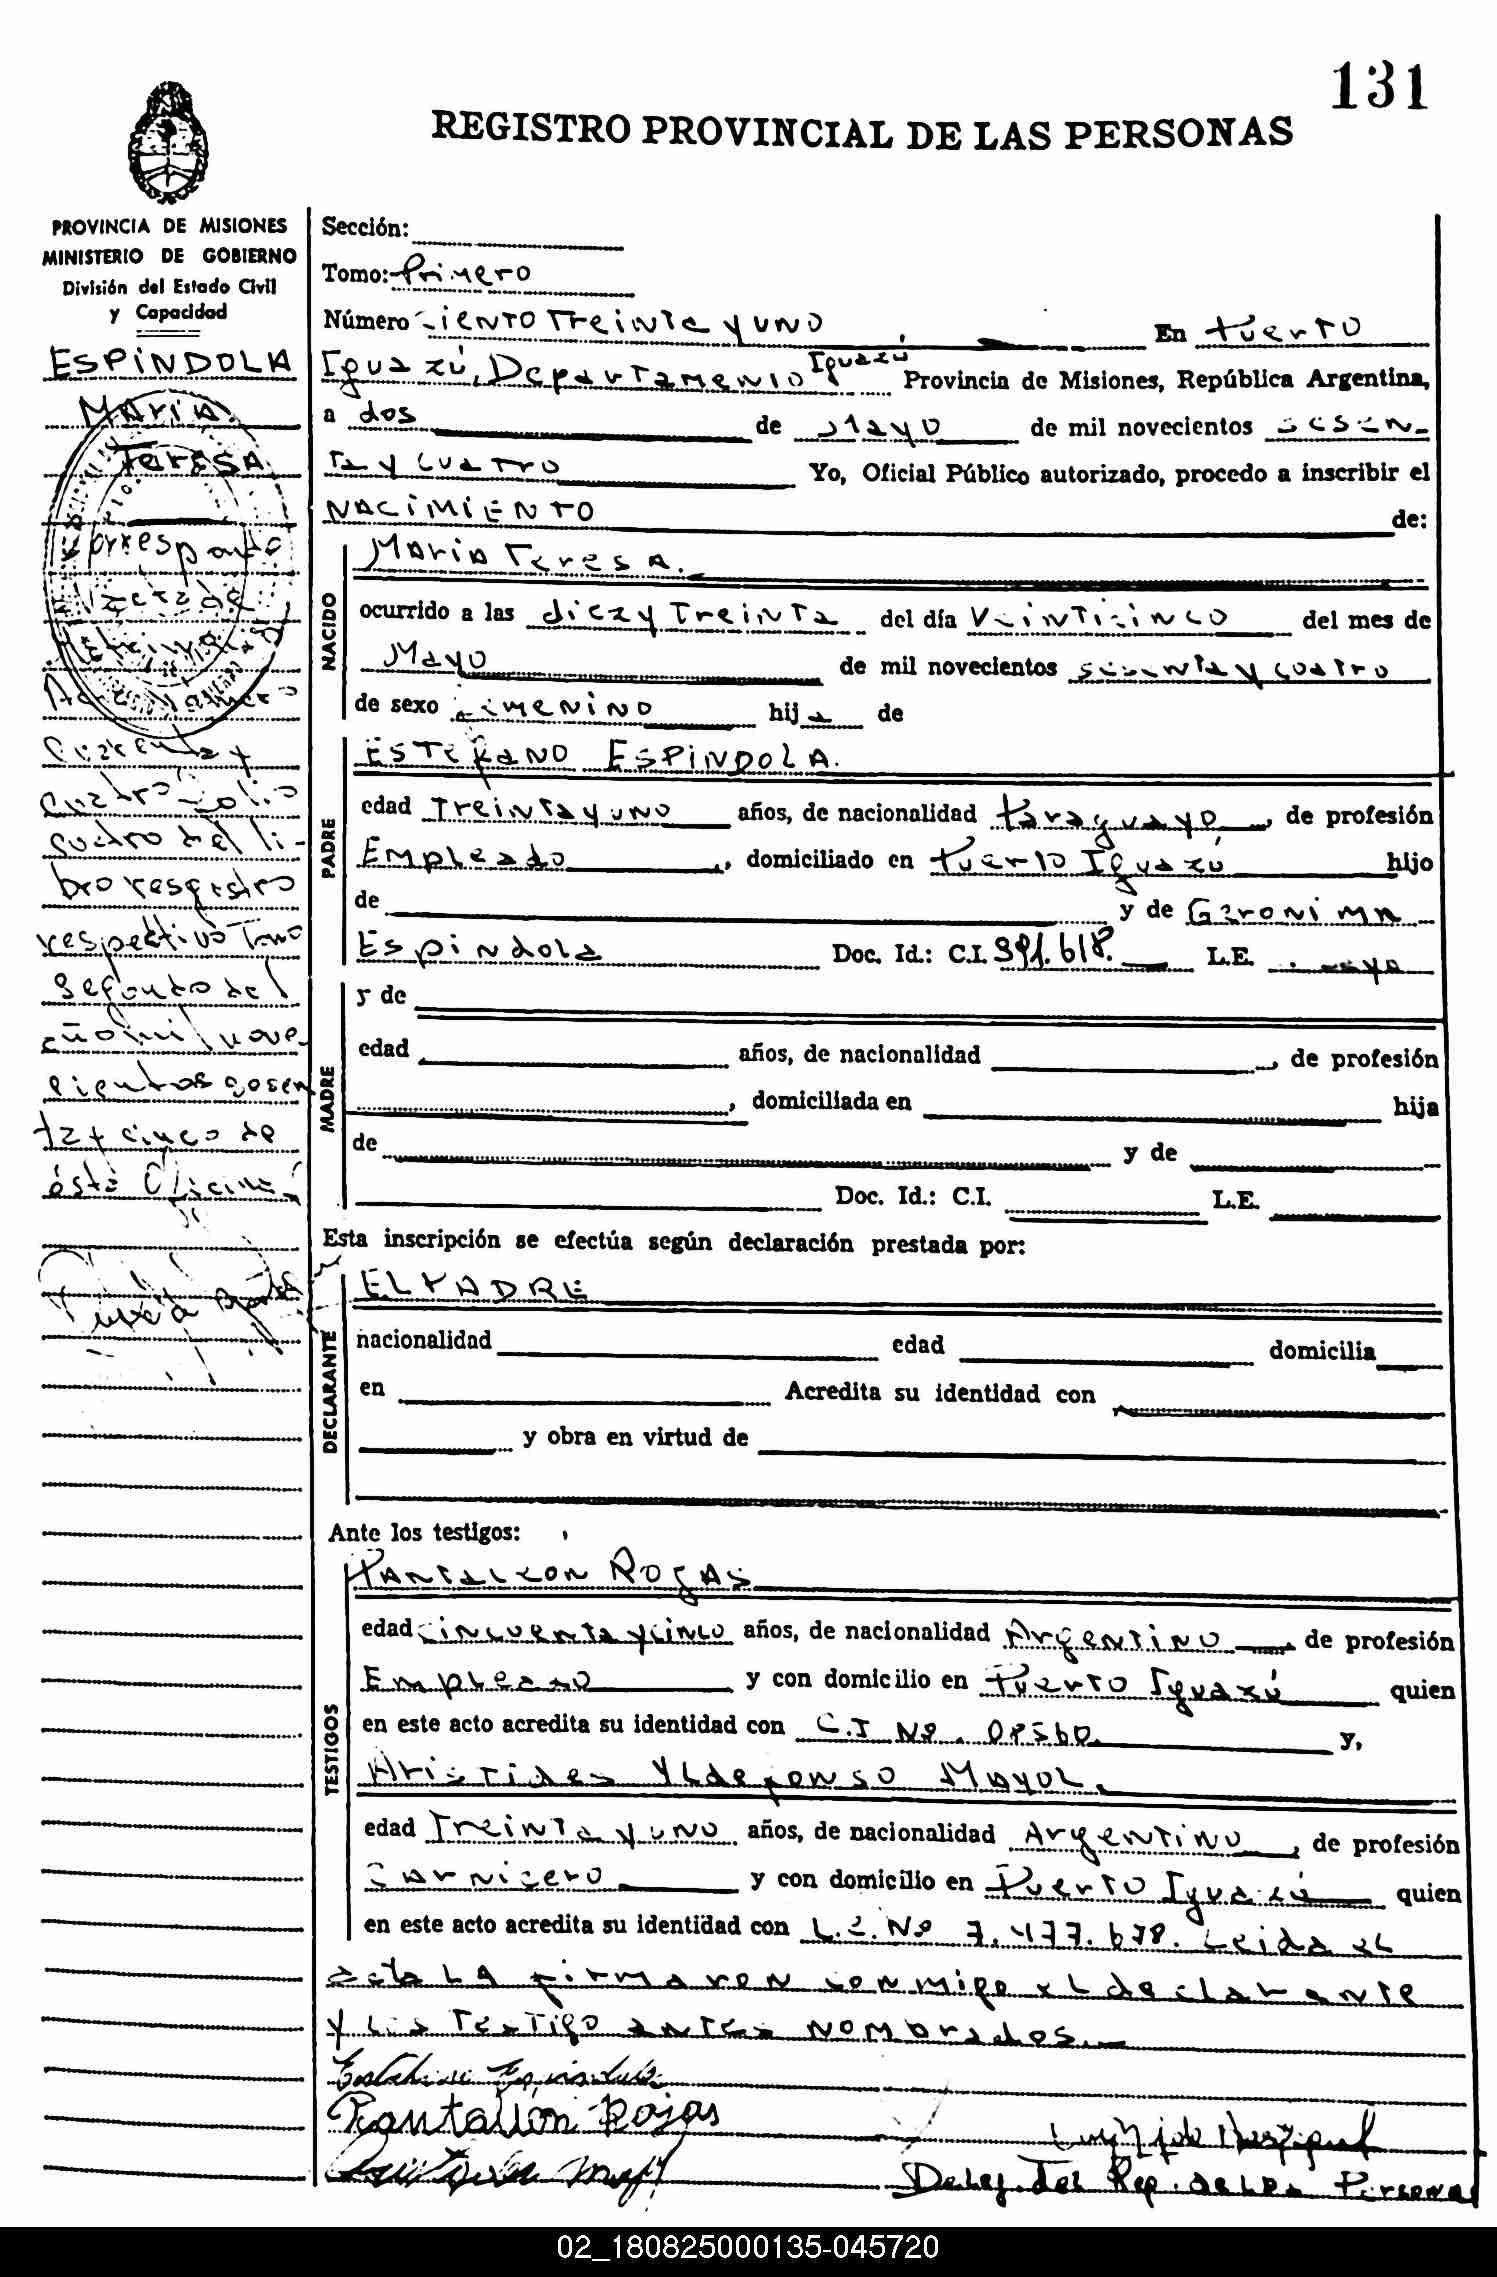 131
REGISTRO PROVINCIAL DE LAS PERSONAS
PROVINCIA DE MISIONES
MINISTERIO DE GOBIERNO
División del Estado Civil
y Capacidad
ESPINDOLA
MARIA
TERESA
Corresponde
Acta Número
cuarenta y
cuatro folio
cuatro del li-
bro resgistro
respectivo Tomo
segundo del
año mil nove
cientos sesen
ta y cinco de
ésta Oficina
Sección:
Tomo: Primero
Número Ciento Treinta y uno En Puerto
Iguazú, Departamento Iguazú Provincia de Misiones, República Argentina,
a dos de Mayo de mil novecientos sesen-
ta y cuatro Yo, Oficial Público autorizado, procedo a inscribir el
NACIMIENTO de:
NACIDO
Maria Teresa.
ocurrido a las diez y Treinta del día Veinticinco del mes de
Mayo de mil novecientos sesenta y cuatro
de sexo femenino hija de
PADRE
ESTEFANO ESPINDOLA.
edad Treinta y uno años, de nacionalidad Paraguayo, de profesión
Empleado, domiciliado en Puerto Iguazú hijo
de y de Geronima
Espindola Doc. Id.: C.I. 391.618. L.E.
MADRE
y de
edad años, de nacionalidad , de profesión
, domiciliada en hija
de y de
Doc. Id.: C.I. L.E.
Esta inscripción se efectúa según declaración prestada por:
DECLARANTE
EL PADRE
nacionalidad edad domicilia
en Acredita su identidad con
y obra en virtud de
Ante los testigos:
TESTIGOS
Pantaleon Rojas
edad Cincuenta y cinco años, de nacionalidad Argentino, de profesión
Empleado y con domicilio en Puerto Iguazú quien
en este acto acredita su identidad con C.I Nº. 08560. y,
Aristides Yldefonso Mayol.
edad Treinta y uno años, de nacionalidad Argentino, de profesión
Carnicero y con domicilio en Puerto Iguazú quien
en este acto acredita su identidad con L.E. Nº 7.477.678. Leida el
acta LA firmaron conmigo el declarante
y los Testigo antes nombrados.-
Pantalión Rojas
Deleg. Del Reg. de Las Personas
02_180825000135-045720